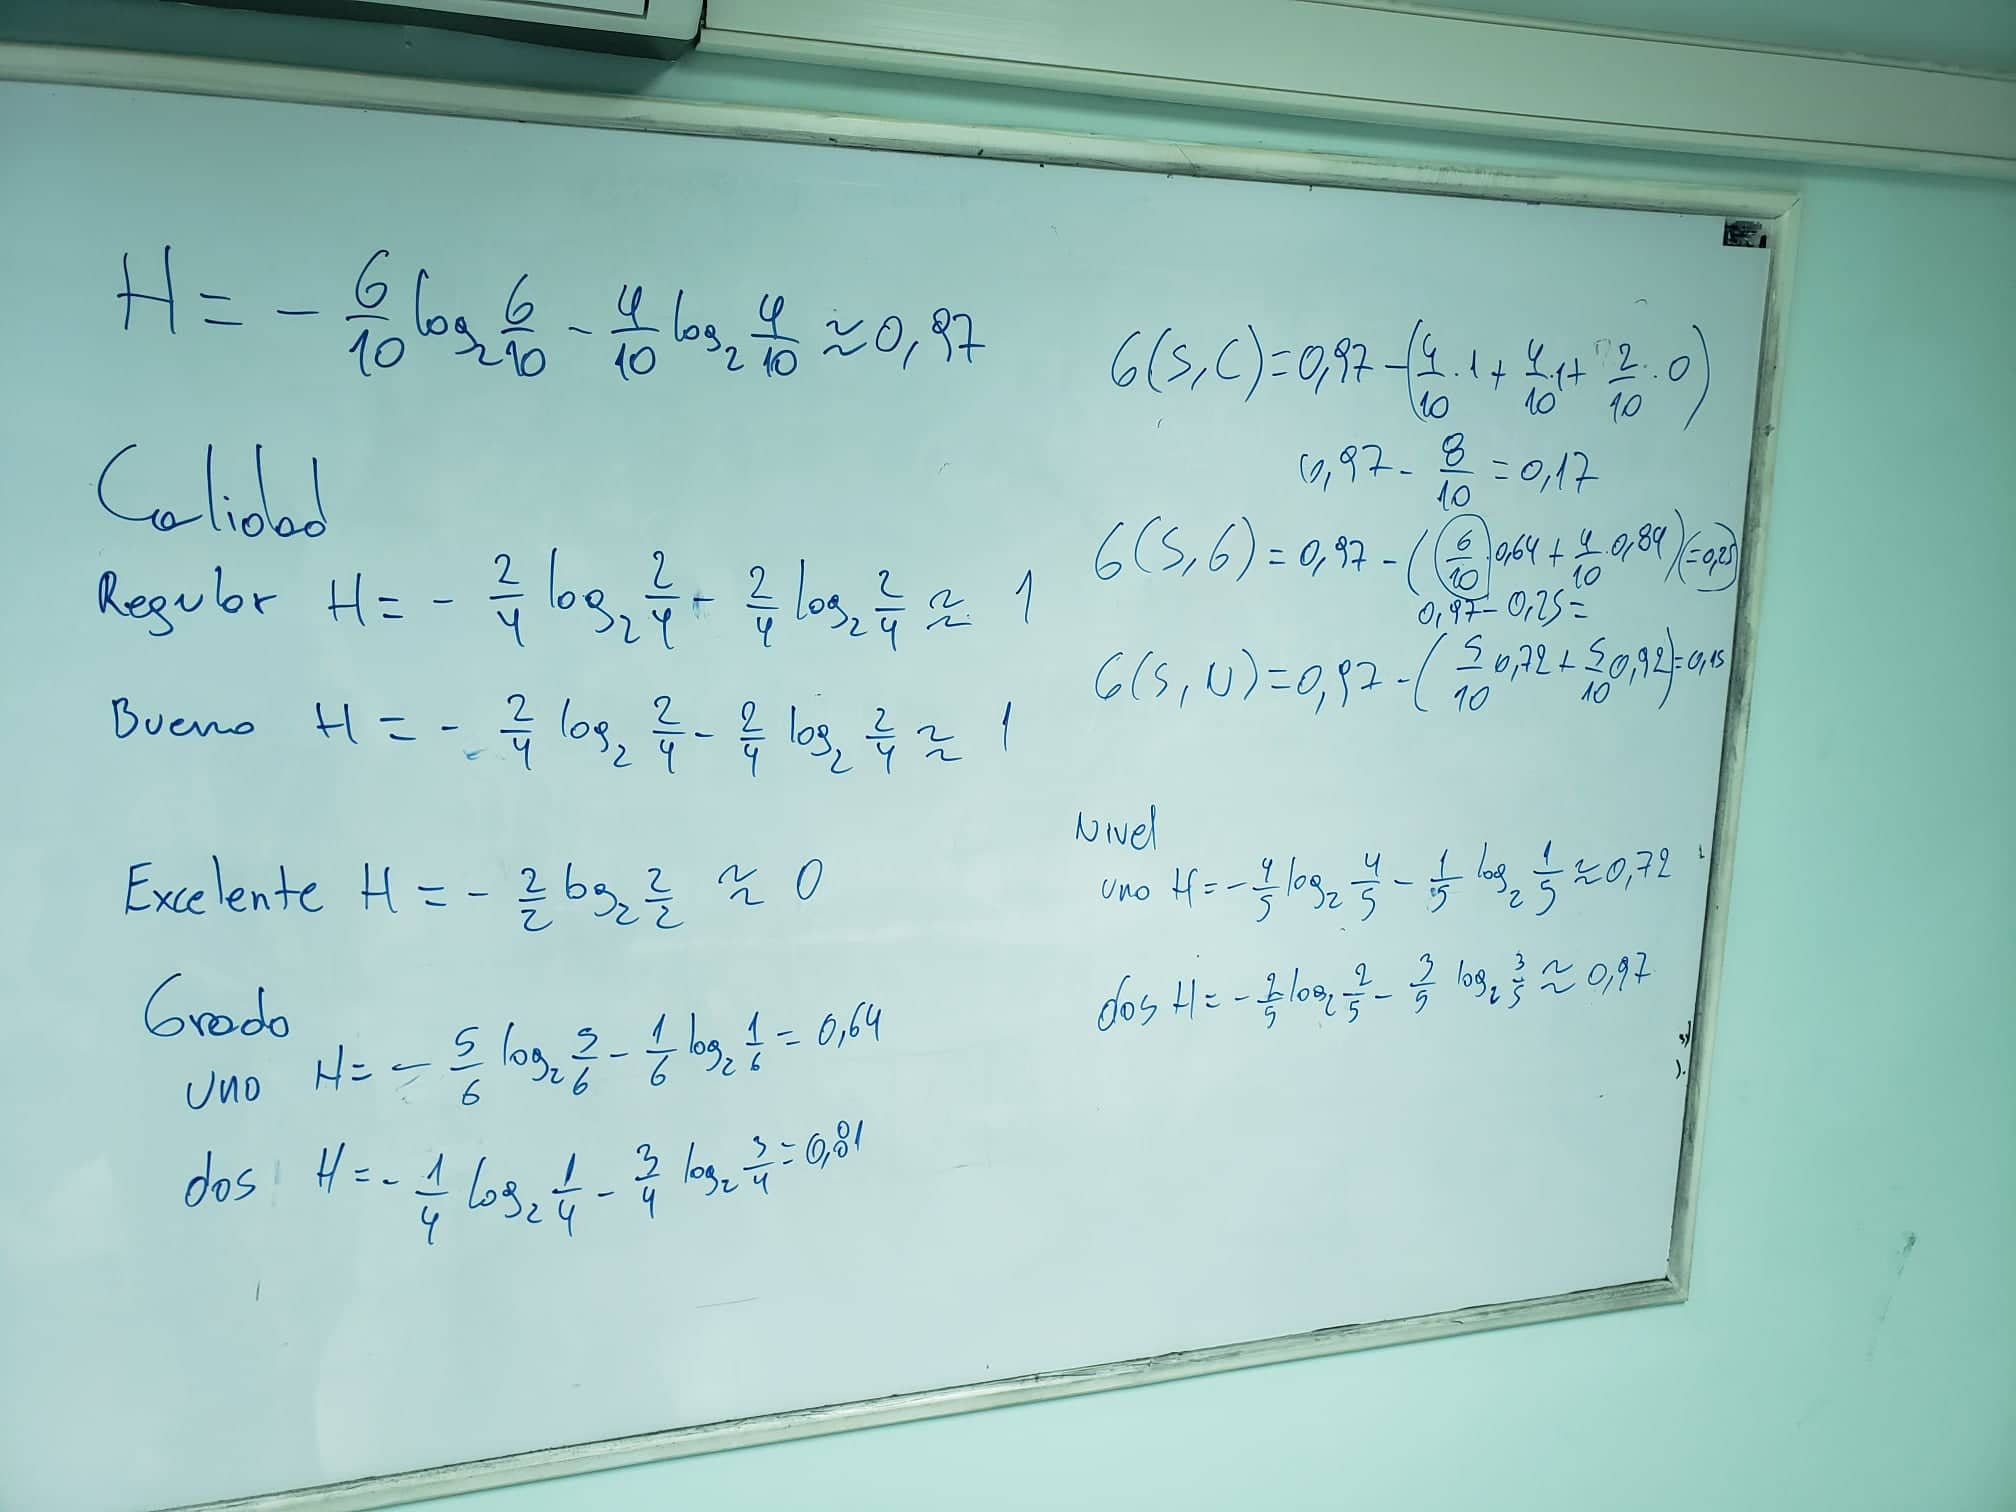 H = - 6/10 log₂ 6/10 - 4/10 log₂ 4/10 ≈ 0,97
Calidad
Regular H = - 2/4 log₂ 2/4 - 2/4 log₂ 2/4 ≈ 1
Bueno H = - 2/4 log₂ 2/4 - 2/4 log₂ 2/4 ≈ 1
Excelente H = - 2/2 log₂ 2/2 ≈ 0
Grado
uno H = - 5/6 log₂ 5/6 - 1/6 log₂ 1/6 = 0,64
dos H = - 1/4 log₂ 1/4 - 3/4 log₂ 3/4 = 0,81
G(S,C) = 0,97 - (4/10 . 1 + 4/10 . 1 + 2/10 . 0)
0,97 - 8/10 = 0,17
G(S,G) = 0,97 - (6/10 0,64 + 4/10 . 0,84) = 0,25
0,97 - 0,25 =
G(S,N) = 0,97 - (5/10 0,72 + 5/10 0,92) = 0,15
Nivel
uno H = - 4/5 log₂ 4/5 - 1/5 log₂ 1/5 ≈ 0,72
dos H = - 2/5 log₂ 2/5 - 3/5 log₂ 3/5 ≈ 0,97